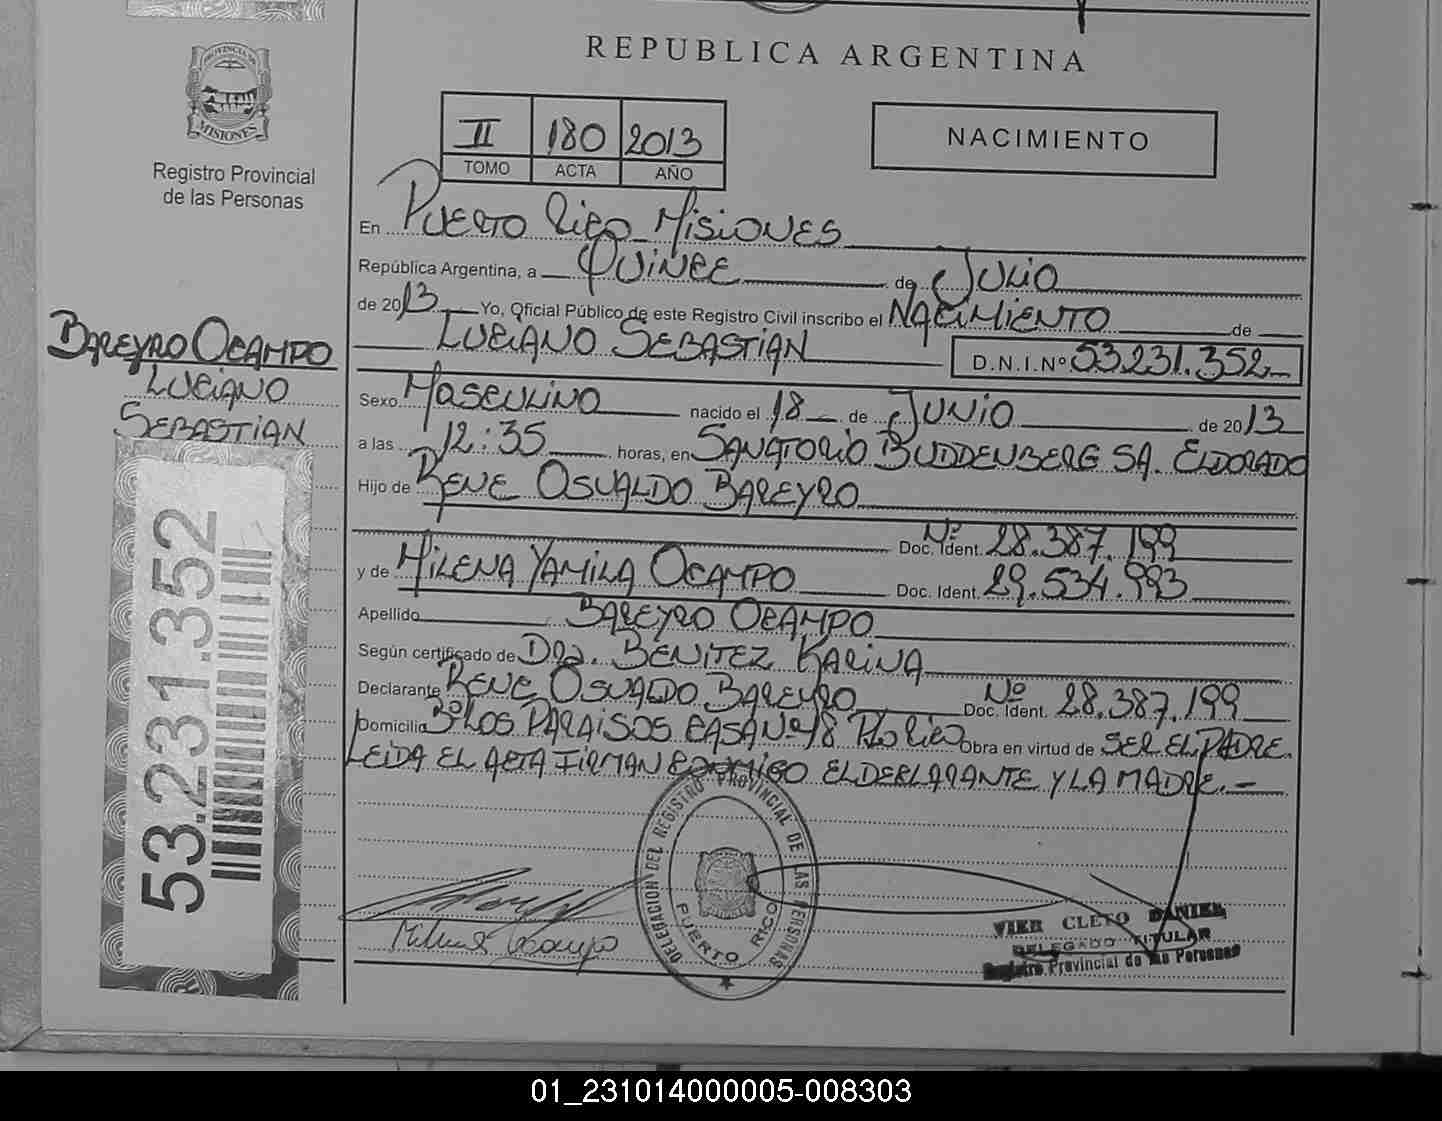 REPUBLICA ARGENTINA
PROVINCIA DE
MISIONES
Registro Provincial
de las Personas
II 180 2013
TOMO ACTA AÑO
NACIMIENTO
En PUERTO RICO MISIONES
República Argentina, a QUINCE de JULIO
de 2013 Yo, Oficial Público de este Registro Civil inscribo el NACIMIENTO de
LUCIANO SEBASTIAN D.N.I. Nº 53.231.352
BAREYRO OCAMPO
LUCIANO
SEBASTIAN
Sexo MASCULINO nacido el 18 de JUNIO de 2013
a las 12:35 horas, en SANATORIO BUDDENBERG SA. ELDORADO
Hijo de RENE OSVALDO BAREYRO
Doc. Ident. Nº 28.387.199
y de MILENA YAMILA OCAMPO Doc. Ident. 29.534.993
Apellido BAREYRO OCAMPO
Según certificado de DRA. BENITEZ KARINA
Declarante RENE OSVALDO BAREYRO Doc. Ident. Nº 28.387.199
Domicilio Bº LOS PARAISOS CASA Nº 18 Pto RICO Obra en virtud de SER EL PADRE.
LEIDA EL ACTA FIRMAN CONMIGO EL DECLARANTE Y LA MADRE.-
53.231.352
DELEGACION DEL REGISTRO PROVINCIAL DE LAS PERSONAS
PUERTO RICO
Milena Ocampo
VIER CLETO DANIEL
DELEGADO TITULAR
Registro Provincial de las Personas
01_231014000005-008303